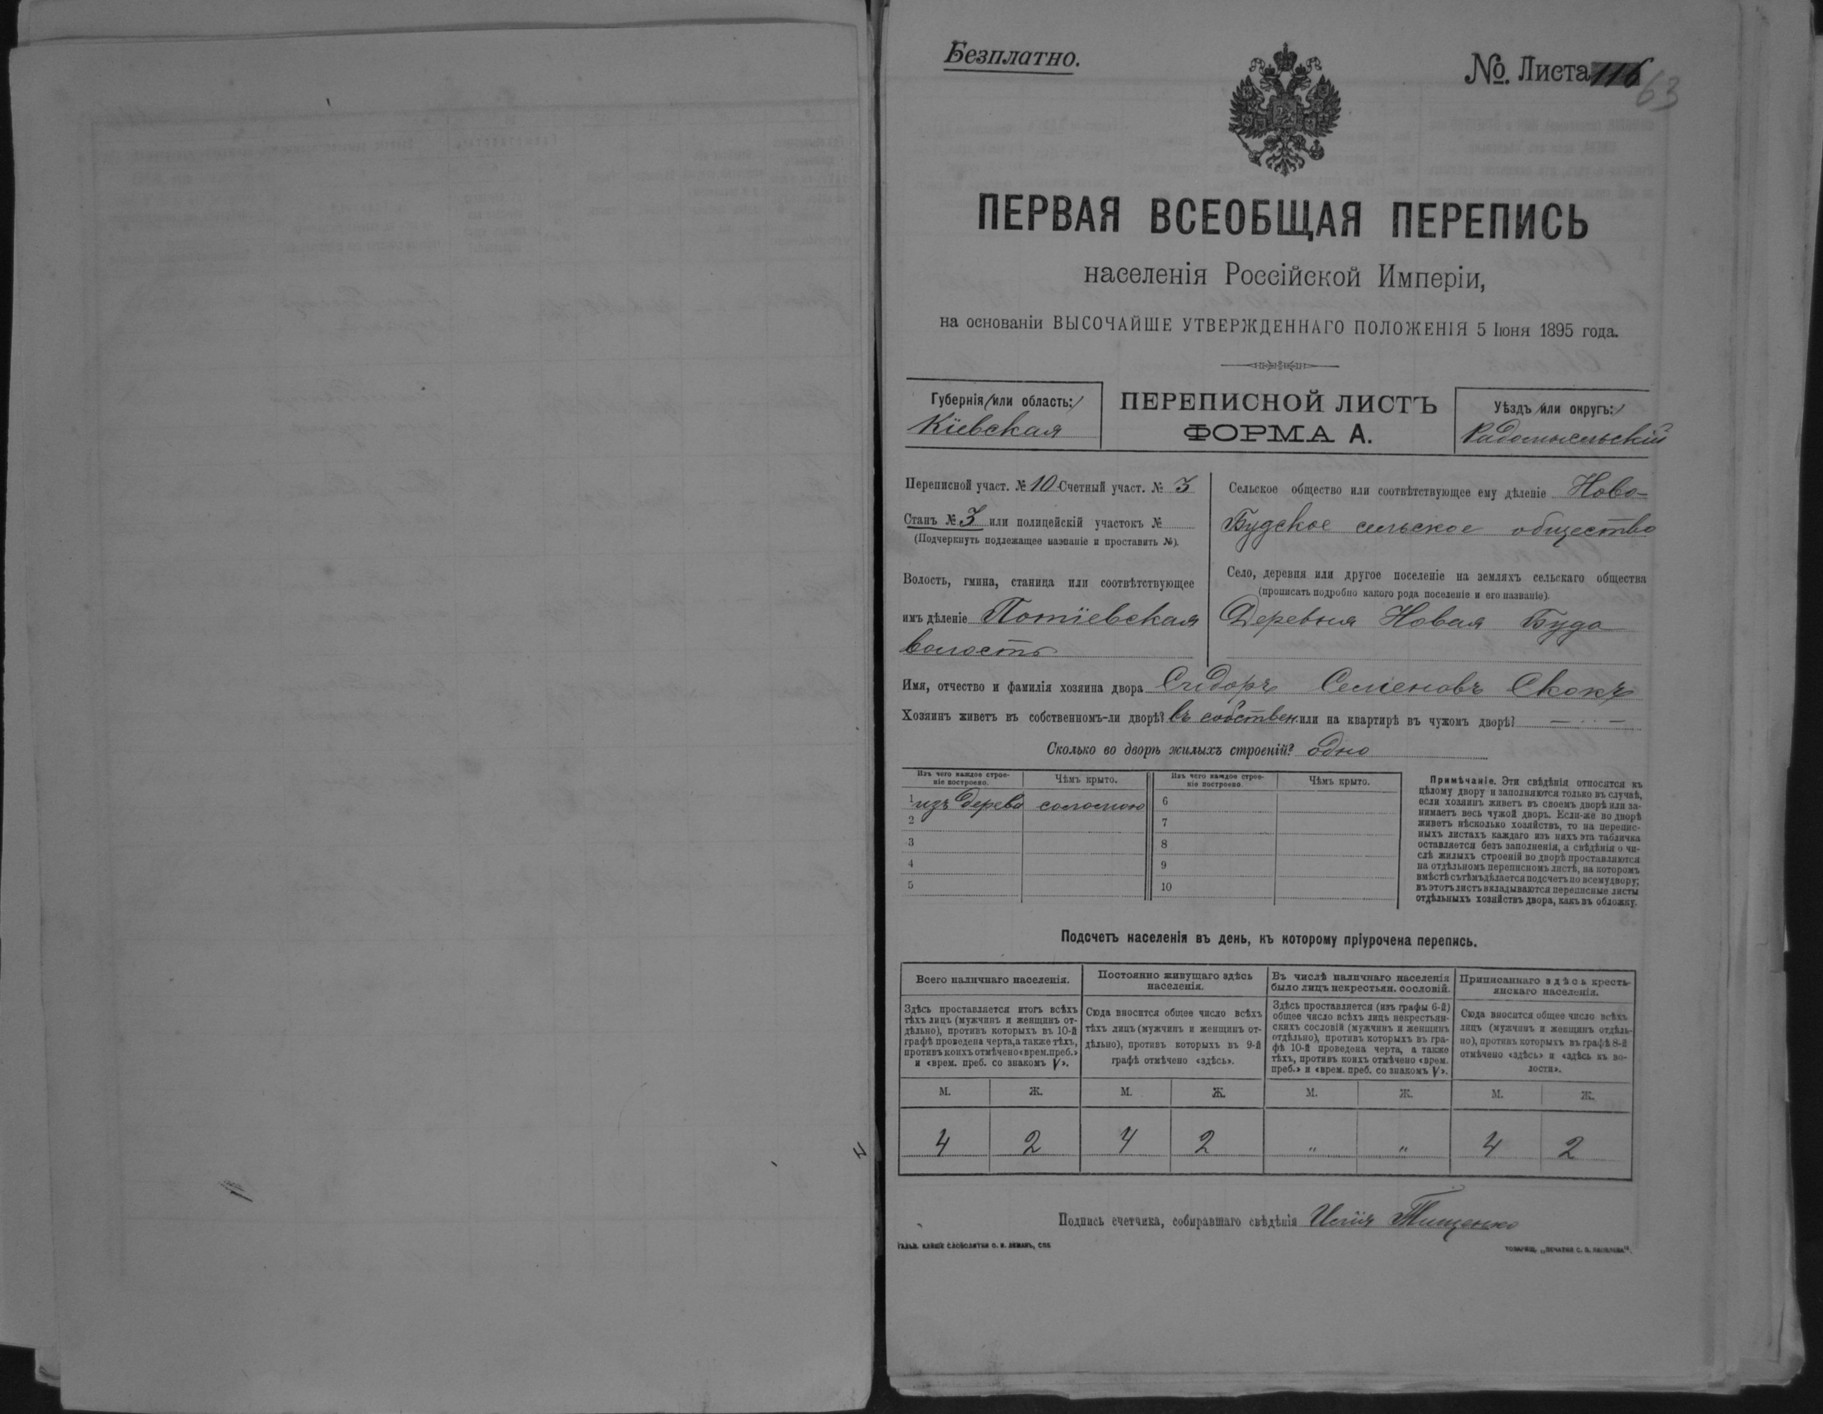 Безплатно.
№. Листа 116
63
ПЕРВАЯ ВСЕОБЩАЯ ПЕРЕПИСЬ
населенія Россійской Имперіи,
на основаніи ВЫСОЧАЙШЕ УТВЕРЖДЕННАГО ПОЛОЖЕНІЯ 5 Іюня 1895 года.
Губернія /или область:/
Кіевская
ПЕРЕПИСНОЙ ЛИСТЪ
ФОРМА А.
Уѣздъ /или округъ:/
Радомысльскій
Переписной участ. № 10 Счетный участ. № 3
Станъ № 3 или полицейскій участокъ №
(Подчеркнуть подлежащее названіе и проставить №).
Волость, гмина, станица или соотвѣтствующее
имъ дѣленіе Потіевская
волость
Сельское общество или соотвѣтствующее ему дѣленіе Ново-
Будское сельское общество
Село, деревня или другое поселеніе на земляхъ сельскаго общества
(прописать подробно какого рода поселеніе и его названіе).
Деревня Новая Буда
Имя, отчество и фамилія хозяина двора Сидоръ Семеновъ Скокъ
Хозяинъ живетъ въ собственномъ-ли дворѣ? въ собствен. или на квартирѣ въ чужомъ дворѣ? — · · —
Сколько во дворѣ жилыхъ строеній? одно
Изъ чего каждое строе-
ніе построено.
Чѣмъ крыто.
Изъ чего каждое строе-
ніе построено.
Чѣмъ крыто.
1 изъ дерева соломою
2
3
4
5
6
7
8
9
10
Примѣчаніе. Эти свѣдѣнія относятся къ
цѣлому двору и заполняются только въ случаѣ,
если хозяинъ живетъ въ своемъ дворѣ или за-
нимаетъ весь чужой дворъ. Если-же во дворѣ
живетъ нѣсколько хозяйствъ, то на перепис-
ныхъ листахъ каждаго изъ нихъ эта табличка
оставляется безъ заполненія, а свѣдѣнія о чи-
слѣ жилыхъ строеній во дворѣ проставляются
на отдѣльномъ переписномъ листѣ, на которомъ
вмѣстѣ съ тѣмъ дѣлается подсчетъ по всему двору;
въ этотъ листъ вкладываются переписные листы
отдѣльныхъ хозяйствъ двора, какъ въ обложку.
Подсчетъ населенія въ день, къ которому пріурочена перепись.
Всего наличнаго населенія.
Здѣсь проставляется итогъ всѣхъ
тѣхъ лицъ (мужчинъ и женщинъ от-
дѣльно), противъ которыхъ въ 10-й
графѣ проведена черта, а также тѣхъ,
противъ коихъ отмѣчено «врем. преб.»
и «врем. преб. со знакомъ V».
Постоянно живущаго здѣсь
населенія.
Сюда вносится общее число всѣхъ
тѣхъ лицъ (мужчинъ и женщинъ от-
дѣльно), противъ которыхъ въ 9-й
графѣ отмѣчено «здѣсь».
Въ числѣ наличнаго населенія
было лицъ некрестьян. сословій.
Здѣсь проставляется (изъ графы 6-й)
общее число всѣхъ лицъ некрестьян-
скихъ сословій (мужчинъ и женщинъ
отдѣльно), противъ которыхъ въ гра-
фѣ 10-й проведена черта, а также
тѣхъ, противъ коихъ отмѣчено «врем.
преб.» и «врем. преб. со знакомъ V».
Приписаннаго здѣсь кресть-
янскаго населенія.
Сюда вносится общее число всѣхъ
лицъ (мужчинъ и женщинъ отдѣль-
но), противъ которыхъ въ графѣ 8-й
отмѣчено «здѣсь» и «здѣсь къ во-
лости».
М. Ж. М. Ж. М. Ж. М. Ж.
4 2 4 2 „ „ 4 2
Подпись счетчика, собиравшаго свѣдѣнія Илія Тищенко